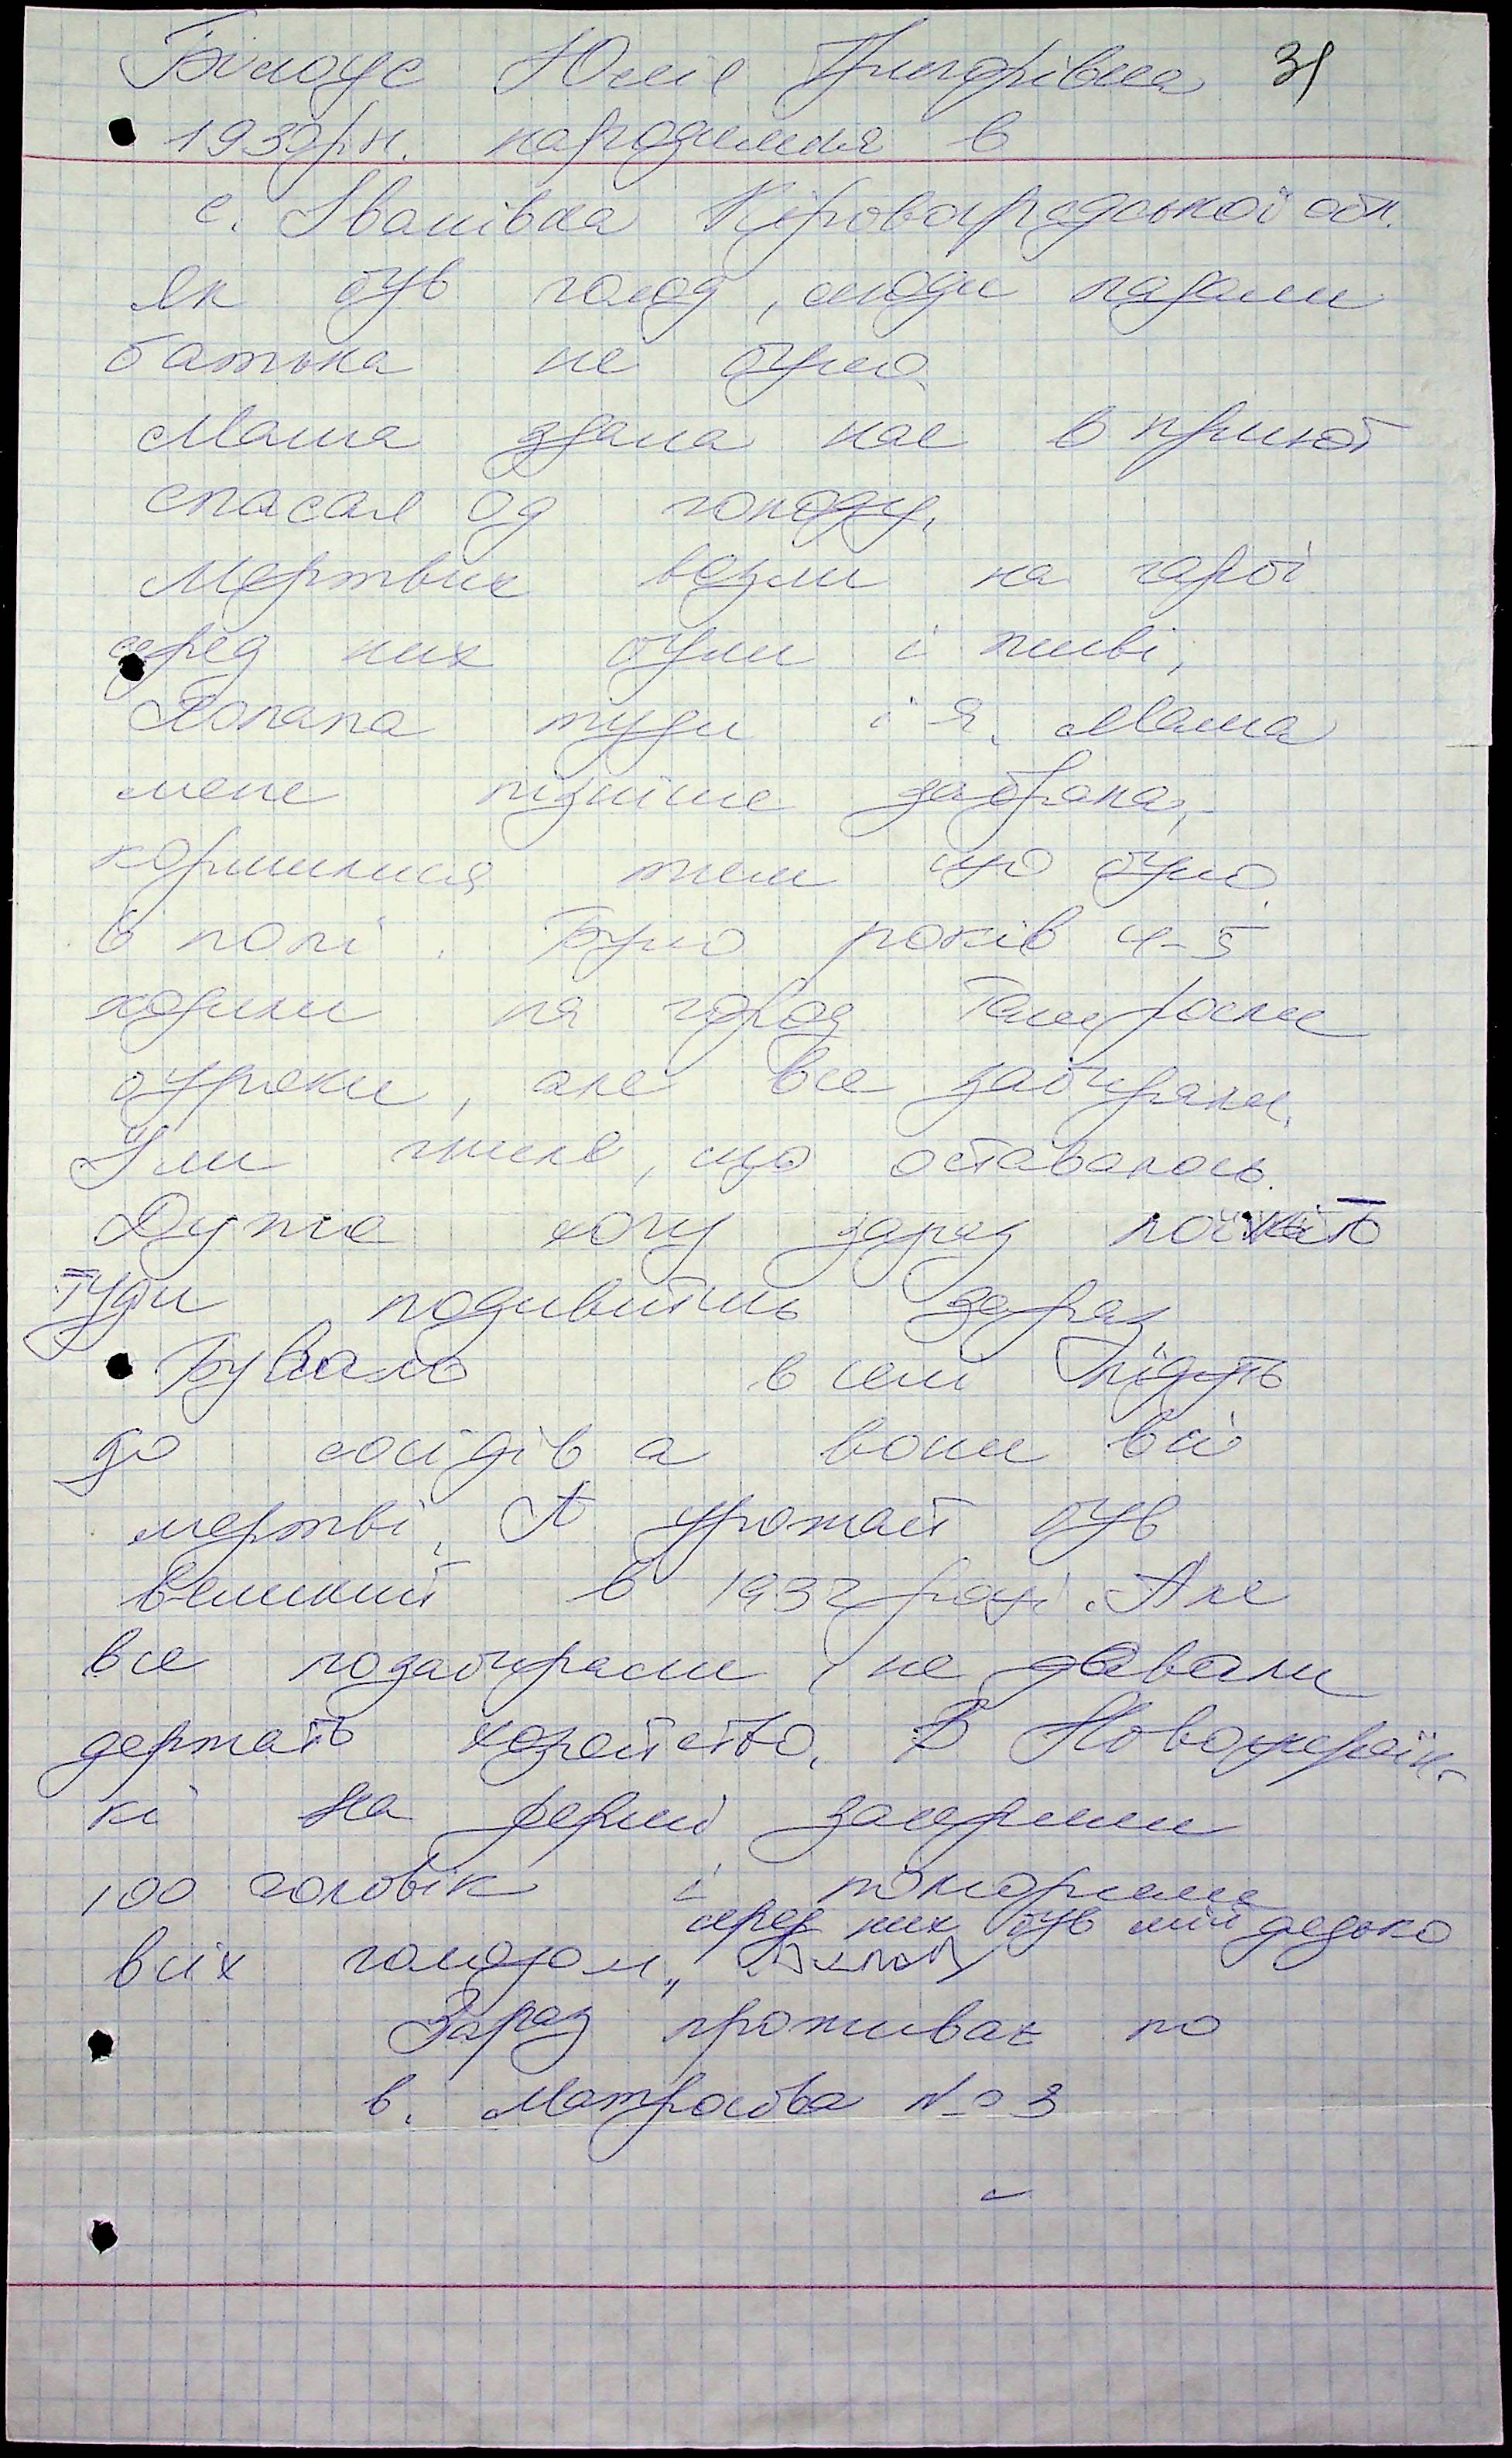 Білоус Юлія Григорівна 31
193 р.н. народилася в
с. Іванівка Кіровоградської обл.
як був голод, люди падали
батька не було
Мама здала нас в приют
спасая од голоду.
Мертвих везли на гарбі
серед них були і живі,
Попала туди і я. Мама
мене пізніше забрала,
кормилися тим що було
в полі. Було років 4-5
ходили на город Там росли
огірки, але все забирали.
Їли гниле, що оставалось.
Дуже хочу зараз поїхать
туди подивитись зараз
Бувало в селі підуть
до сосідів а вони всі
мертві. А урожай був
великий в 1932 році. Але
все позабирали, не давали
держать хозяйство. В Новоукраїн-
ці на фермі заперли
100 чоловік і поморили
серед них був мій дедько
всіх голодом,
Зараз проживає по
в. Матросова № 3